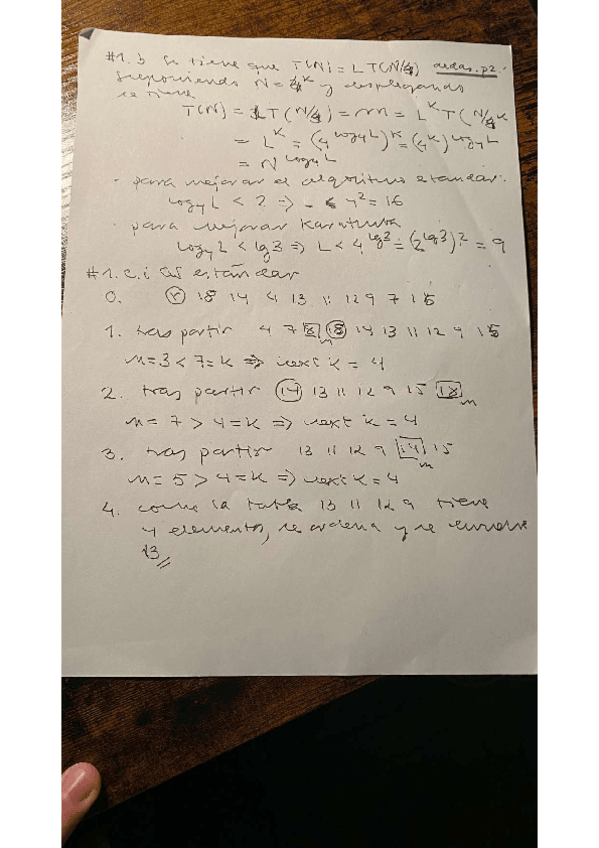 #1.b Se tiene que T(N) = L T(N/4) aedas.p2.
Suponiendo N = 4^K y desplegando
se tiene
T(N) = L T(N/4) = = L^K T(N/4^K
= L^K = (4^log4L)^K = (4^K)^log4L
= N^log4L
- para mejorar el algoritmo estandar.
log4L < 2 => < 4^2 = 16
- para mejorar Karatsuba
log4L < lg3 => L < 4^lg3 = (2^lg3)^2 = 9
#1.c.i QS estándar
0. 18 14 4 13 11 12 9 7 15
1. tras partir 4 7 8 18 14 13 11 12 9 15
m
m=3 < 7=k => next k = 4
2. tras partir 14 13 11 12 9 15 18
m
m= 7 > 4=k => next k = 4
3. tras partir 13 11 12 9 14 15
m
m= 5 > 4=k => next k=4
4. como la tabla 13 11 12 9 tiene
4 elementos, se ordena y se
13